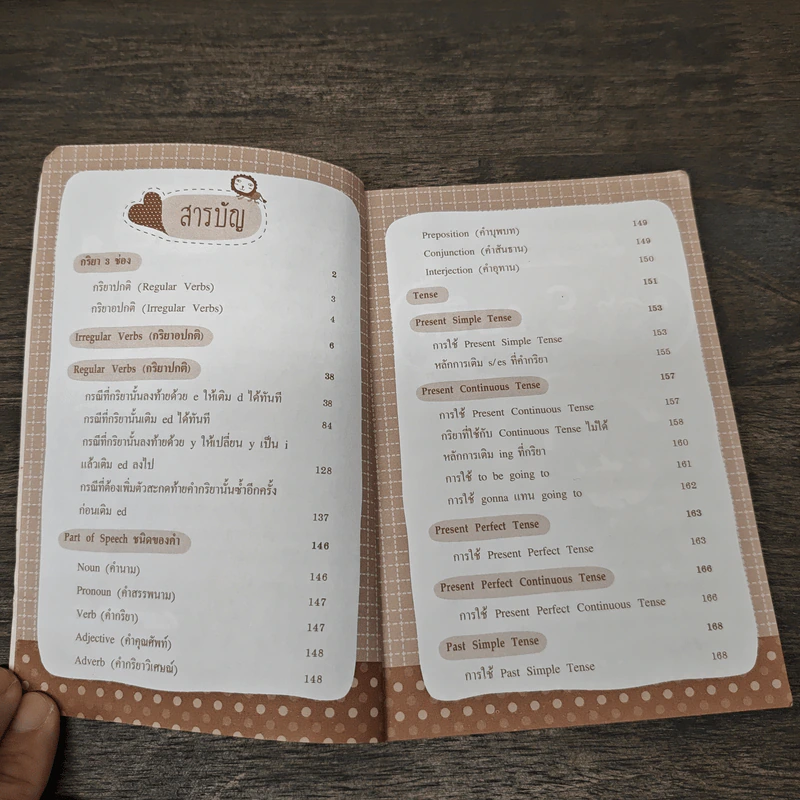 สารบัญ
กริยา 3 ช่อง 2
กริยาปกติ (Regular Verbs) 3
กริยาอปกติ (Irregular Verbs) 4
Irregular Verbs (กริยาอปกติ) 6
Regular Verbs (กริยาปกติ) 38
กรณีที่กริยานั้นลงท้ายด้วย e ให้เติม d ได้ทันที 38
กรณีที่กริยานั้นเติม ed ได้ทันที 84
กรณีที่กริยานั้นลงท้ายด้วย y ให้เปลี่ยน y เป็น i
แล้วเติม ed ลงไป 128
กรณีที่ต้องเพิ่มตัวสะกดท้ายคำกริยานั้นซ้ำอีกครั้ง
ก่อนเติม ed 137
Part of Speech ชนิดของคำ 146
Noun (คำนาม) 146
Pronoun (คำสรรพนาม) 147
Verb (คำกริยา) 147
Adjective (คำคุณศัพท์) 148
Adverb (คำกริยาวิเศษณ์) 148
Preposition (คำบุพบท) 149
Conjunction (คำสันธาน) 149
Interjection (คำอุทาน) 150
Tense 151
Present Simple Tense 153
การใช้ Present Simple Tense 153
หลักการเติม s/es ที่คำกริยา 155
Present Continuous Tense 157
การใช้ Present Continuous Tense 157
กริยาที่ใช้กับ Continuous Tense ไม่ได้ 158
หลักการเติม ing ที่กริยา 160
การใช้ to be going to 161
การใช้ gonna แทน going to 162
Present Perfect Tense 163
การใช้ Present Perfect Tense 163
Present Perfect Continuous Tense 166
การใช้ Present Perfect Continuous Tense 166
Past Simple Tense 168
การใช้ Past Simple Tense 168